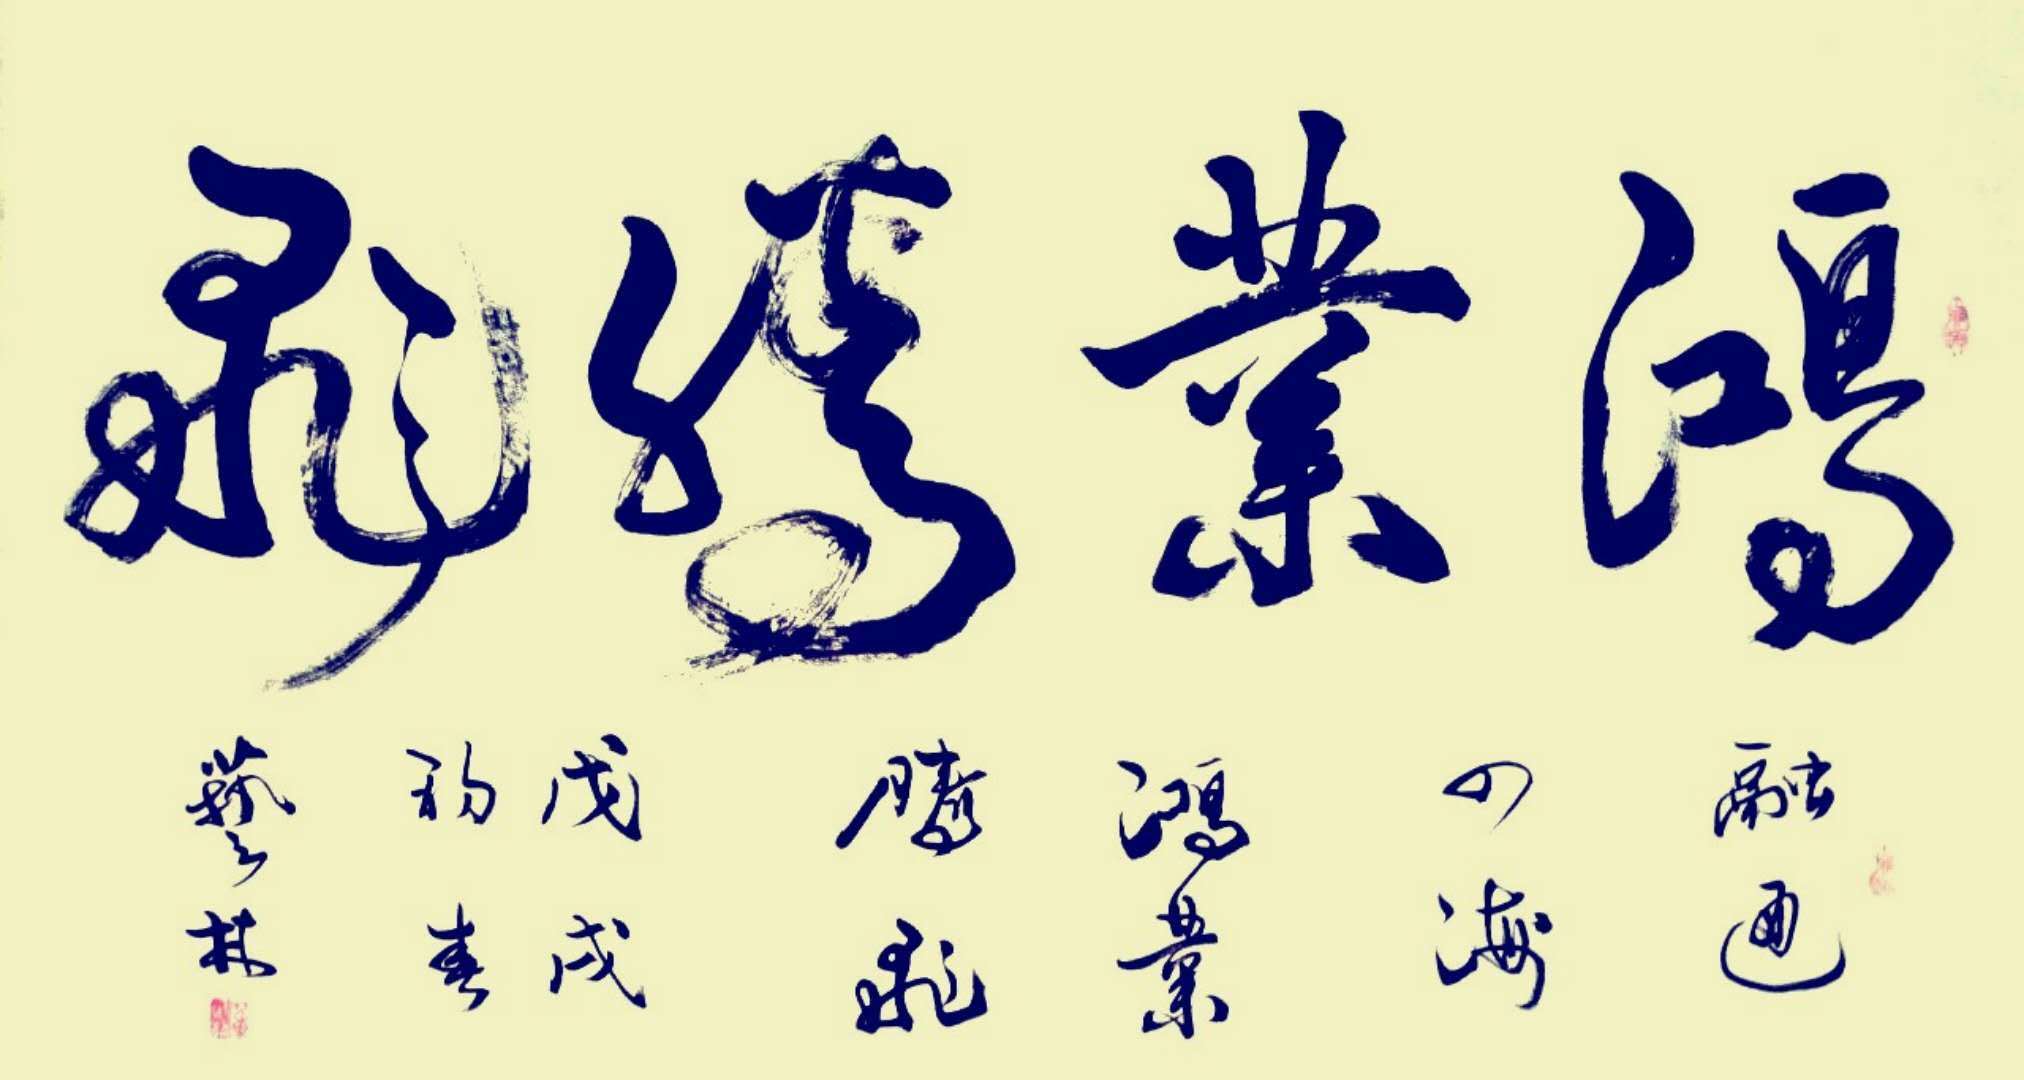 鴻業騰飛
融通
四海
鴻業
騰飛
戊戌
初春
藝林